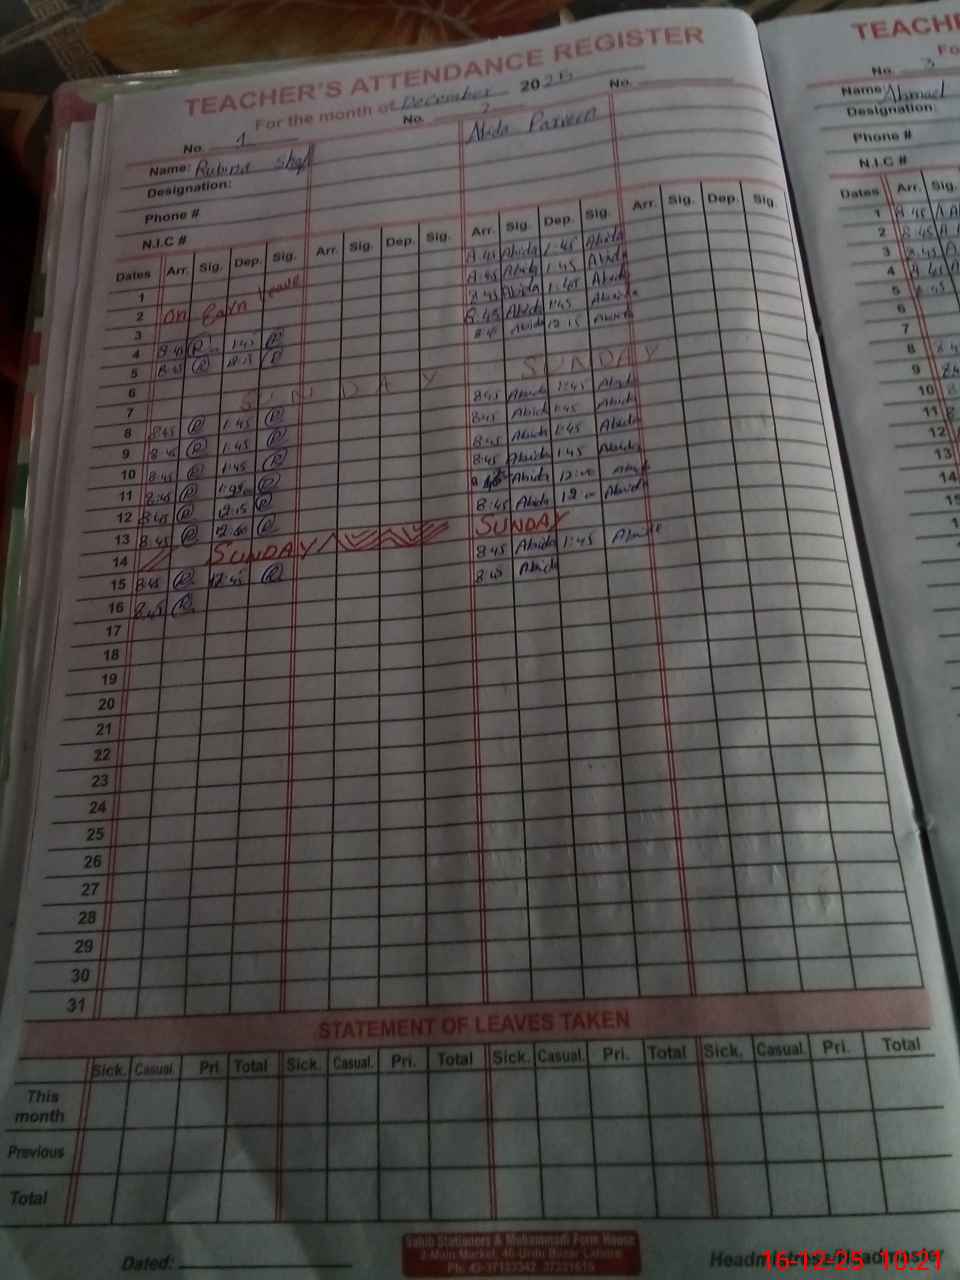 TEACHER'S ATTENDANCE REGISTER
For the month of December 2025
No. 1 No. 2 No.
Name: Rubina Abida Parveen
Designation:
Phone #
N.I.C #
Dates Arr. Sig. Dep. Sig. Arr. Sig. Dep. Sig. Arr. Sig. Dep. Sig. Arr. Sig. Dep. Sig.
1 8:45 Abida 1:45 Abida
2 on Earn leave 8:45 Abida 1:45 Abida
3 8:45 Abida 1:45 Abida
4 8:45 R 1:45 R 8:45 Abida 1:45 Abida
5 8:45 R 12:15 R 8:45 Abida 12:15 Abida
6
7 SUNDAY SUNDAY
8 8:45 R 1:45 R 8:45 Abida 1:45 Abida
9 8:45 R 1:45 R 8:45 Abida 1:45 Abida
10 8:45 R 1:45 R 8:45 Abida 1:45 Abida
11 8:45 R R 8:45 Abida 1:45 Abida
12 8:45 R 12:15 R Abida 12:00 Abida
13 8:45 R 12:00 R 8:45 Abida 12:00 Abida
14 SUNDAY SUNDAY
15 8:45 R 12:45 R 8:45 Abida 1:45 Abida
16 8:45 R 8:45 Abida
17
18
19
20
21
22
23
24
25
26
27
28
29
30
31
STATEMENT OF LEAVES TAKEN
Sick. Casual. Pri. Total Sick. Casual. Pri. Total Sick. Casual. Pri. Total Sick. Casual. Pri. Total
This month
Previous
Total
Dated:
Sahib Stationers & Muhammadi Form House
2-Main Market, 40-Urdu Bazar Lahore.
Headmistress/Headmaster
16-12-25 10:21
TEACH
Fo
No. 3
Name: Ahmad
Designation:
Phone #
N.I.C #
Dates Arr. Sig.
1 8:45
2 8:45
3 8:45
4 8:45
5 8:45
6
7
8
9
10
11
12
13
14
15